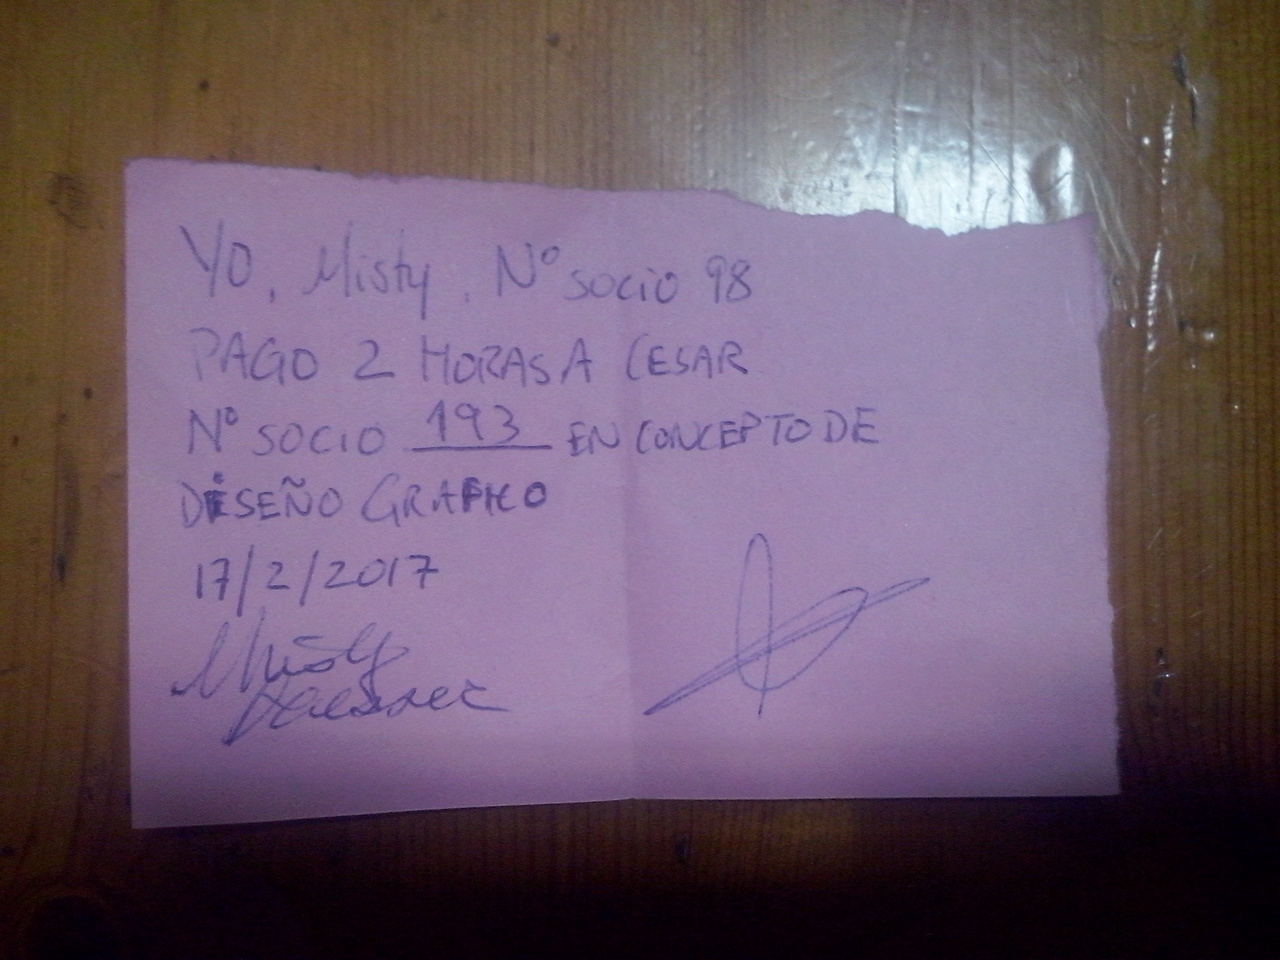 YO, Misty, Nº socio 98
PAGO 2 HORAS A CESAR
Nº SOCIO 193 EN CONCEPTO DE
DISEÑO GRAFICO
17/2/2017
Misty